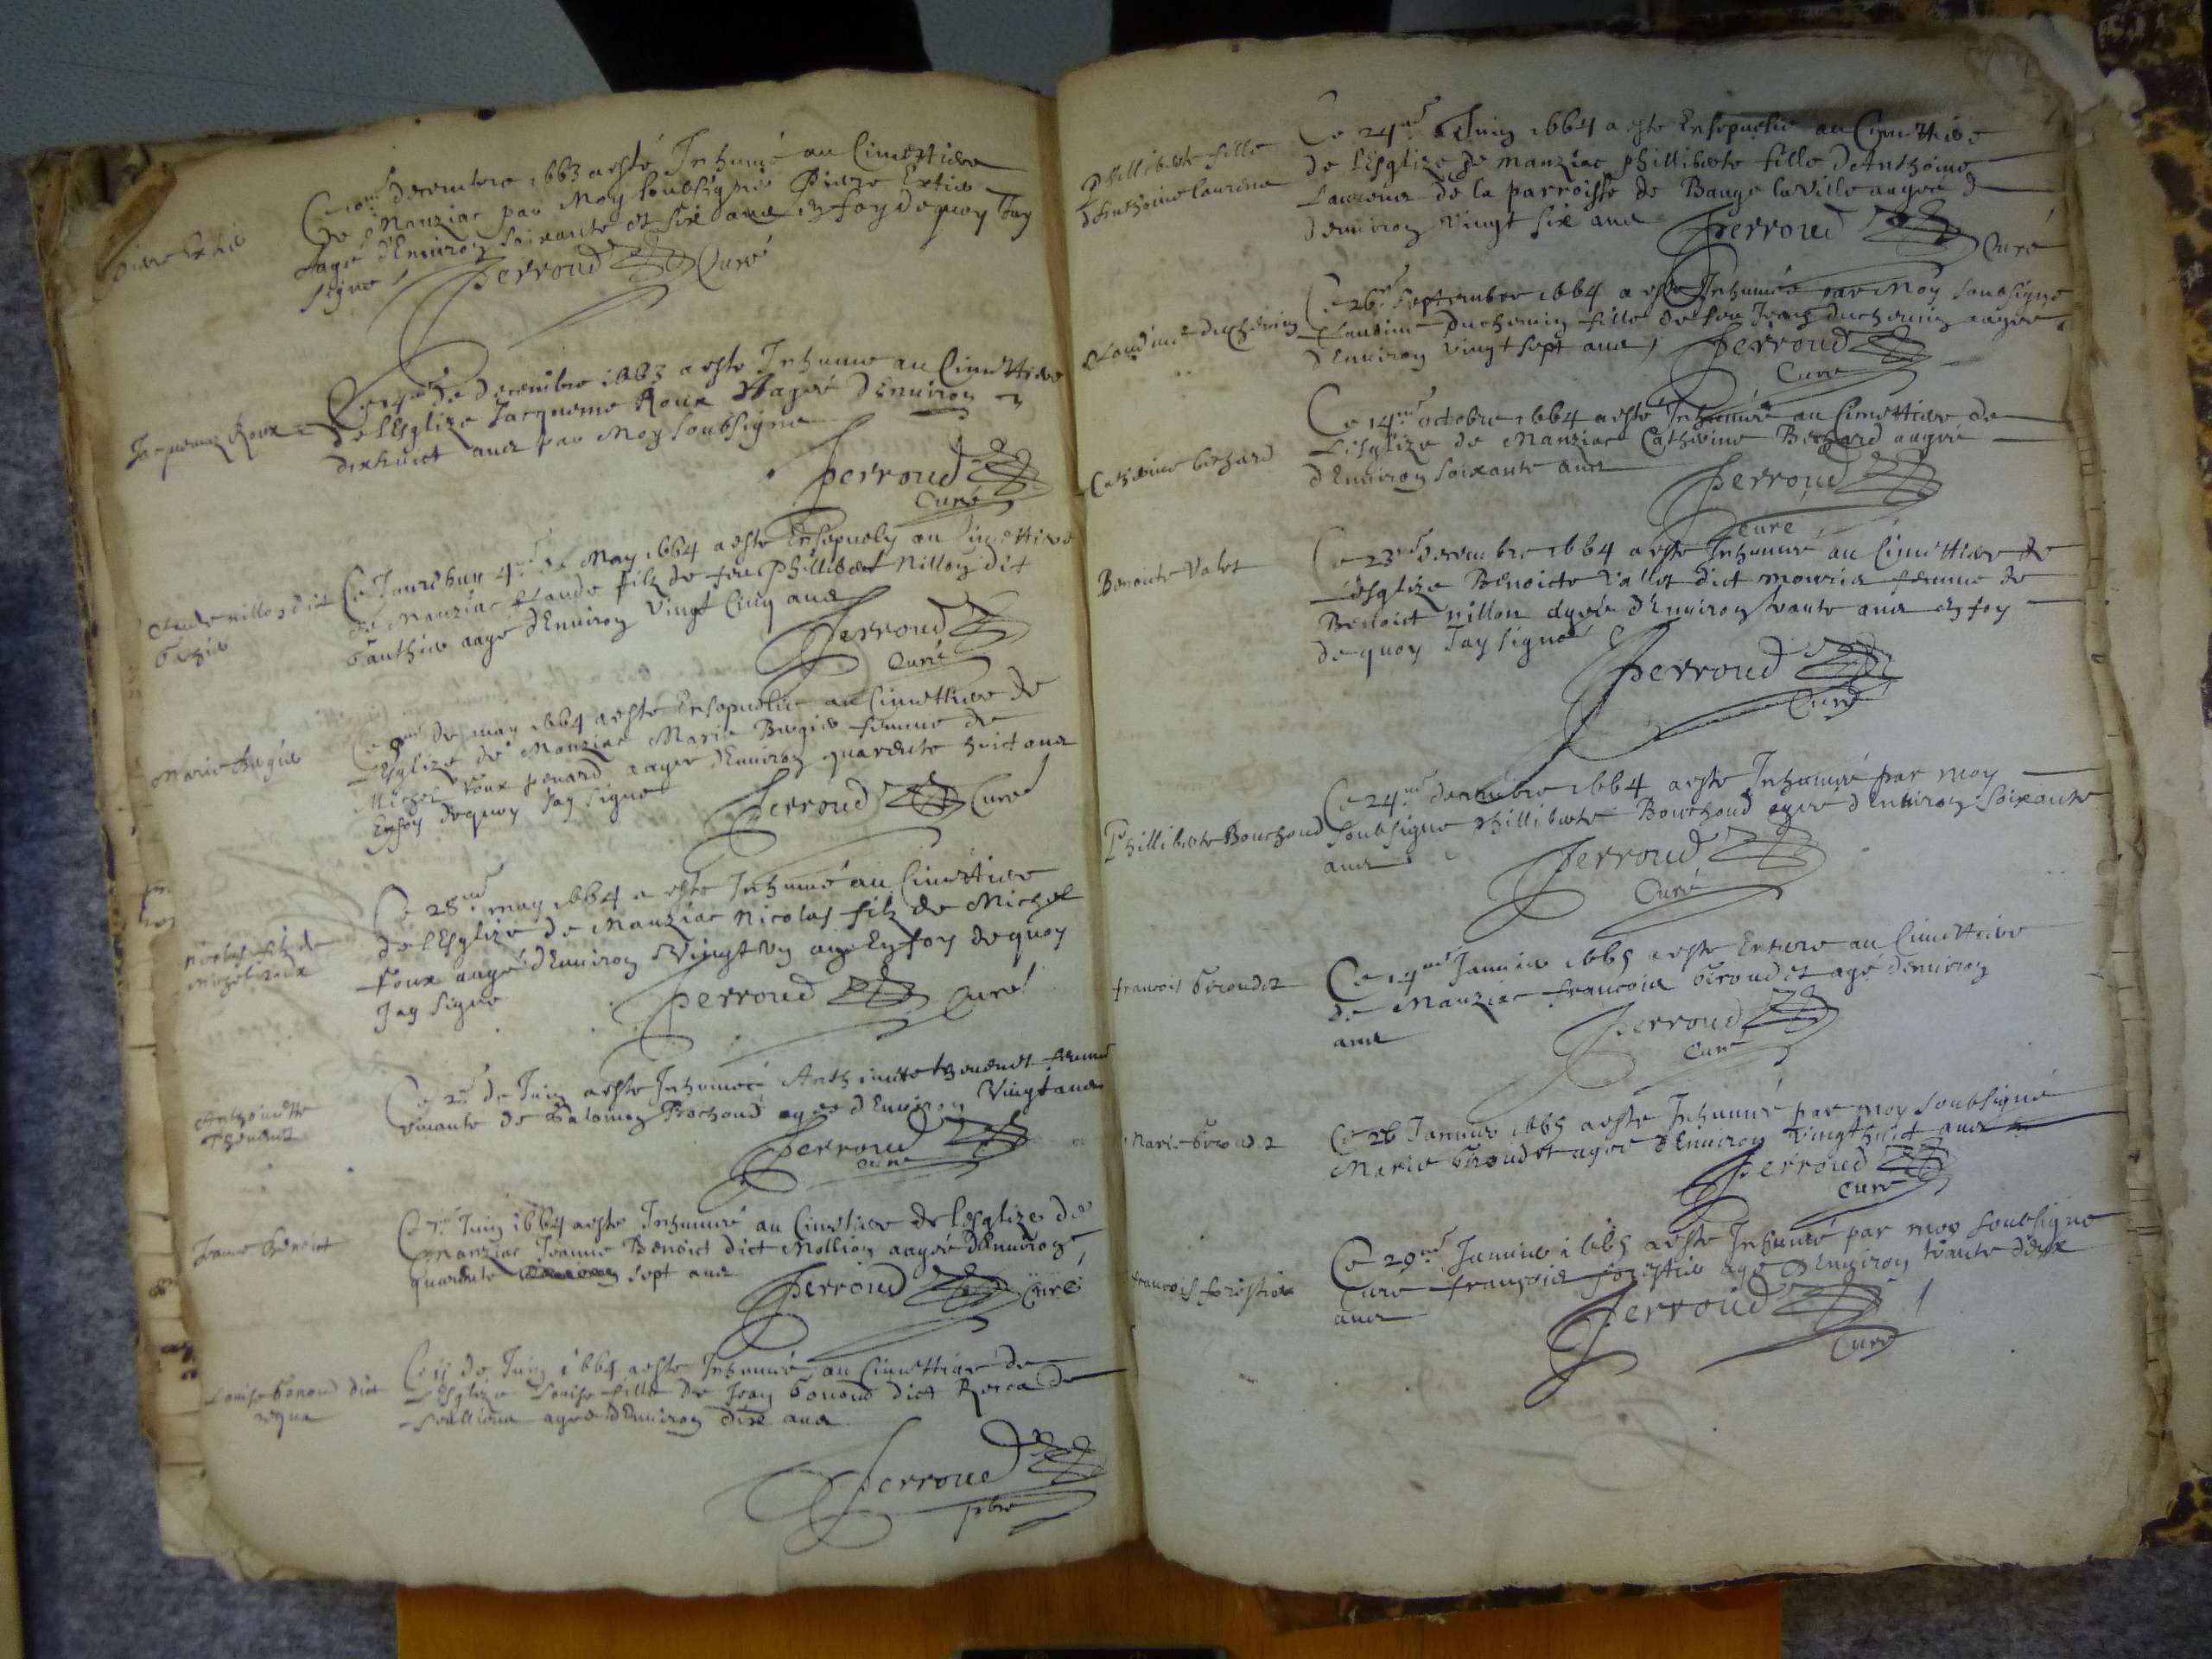 Ce 10me decembre 1663 a esté Inhumé au Cimettiere
de Manziac par Moy soubsigné Pierre
aagé d'Environ soixante et six ans En foy de quoy Jay
signé Perroud Curé
Jacquema Roux
Ce 14me de decembre 1663 a este Inhumé au Cimettiere
de l'Esglize Jacqueme Roux aagée d'Environ
dixhuict ans par Moy soubsigne
Perroud
Curé
Claude nillon dit
Ce Jourdhuy 4me de May 1664 a este Ensepuely au Cimettiere
de Manziac Claude filz de feu Phillibert Nillon dit
aagé d'Environ Vingt Cinq ans
Perroud
Curé
Marie Bugie
Ce me de may 1664 a este Ensepuelie au Cimettiere de
l'Esglize de Manziac Marie Bugie femme de
Michel roux aagee d'Environ quarente huict ans
En foy de quoy Jay signé Perroud Curé
nicolas filz de
michel roux
Ce 28me may 1664 a este Inhumé au Cimettiere
de l'Esglize de Manziac Nicolas filz de Michel
roux aagé d'Environ Vingt Un ans En foy de quoy
Jay signe Perroud Curé
Anthoinette
Ce 2me de Juin a este Inhumée Anthoinette femme
vivante de Rochoud agee d'Environ Vingt ans
Perroud
Curé
Jeanne Benoict
Ce 7me Juin 1664 a este Inhumée au Cimettiere de l'esglize de
Manziac Jeanne Benoict dict Mollion aagée d'Environ
quarente sept ans
Perroud Curé
Louise Gonoud dict
Ce 11 de Juin 1664 a este Inhumée au Cimettiere de
l'Esglize Louise fille de Jean Gonoud dict
agee d'Environ dix ans
Perroud
pbre
Phillibert fille
d'Anthoine Laurens
Ce 24me Juin 1664 a este Ensepuelie au Cimettiere
de l'Esglize de Manziac Philliberte fille d'Anthoine
de la parroisse de Bauge la Ville aagée
d'environ Vingt six ans Perroud Curé
Claudine Duchemin
Ce 26e September 1664 a este Inhumée par Moy soubsigné
Claudine Duchemin fille de feu Jean duchemin aagee
d'Environ Vingt sept ans Perroud
Curé
Catherine Bechard
Ce 14me octobre 1664 a esté Inhumée au Cimettiere de
l'Esglize de Manziac Catherine Bechard aagée
d'Environ soixante ans Perroud
Curé
Benoiste Valet
Ce 23me decembre 1664 a este Inhumée au Cimettiere de
l'esglize Benoicte Vallet dict femme de
Benoict nillon agée d'Environ trante ans En foy
de quoy Jay signé Perroud
Curé
Philliberte Bouchoud
Ce 24me decembre 1664 a este Inhumée par moy
soubsigne Phillibeate Bouchoud agee d'Environ soixante
ans Perroud
Curé
francois Giroudet
Ce 14me Janvier 1665 a este Enterre au Cimettiere
de Manziac francois Giroudet agé d'environ
ans Perroud
Curé
Marie Giroudet
Ce 26 Janvier 1665 a este Inhumée par moy soubsigné
Marie Giroudet agee d'Environ Vingt huict ans
Perroud
Curé
francois forestier
Ce 29me Janvier 1665 a este Inhumé par moy soubsigne
Cure francois forestier agé d'Environ trante deux
ans Perroud
Curé